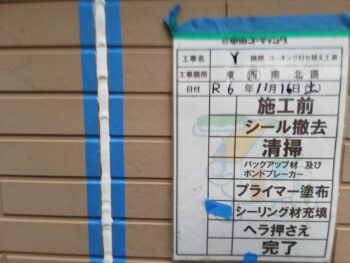 工事名 Y 様邸 コーキング打ち替え工事
工事箇所 東 西 南 北 面
日付 R6年11月16日(土)
施工前
シール撤去
清掃
バックアップ材 及び
ボンドブレーカー
プライマー塗布
シーリング材充填
ヘラ押さえ
完了